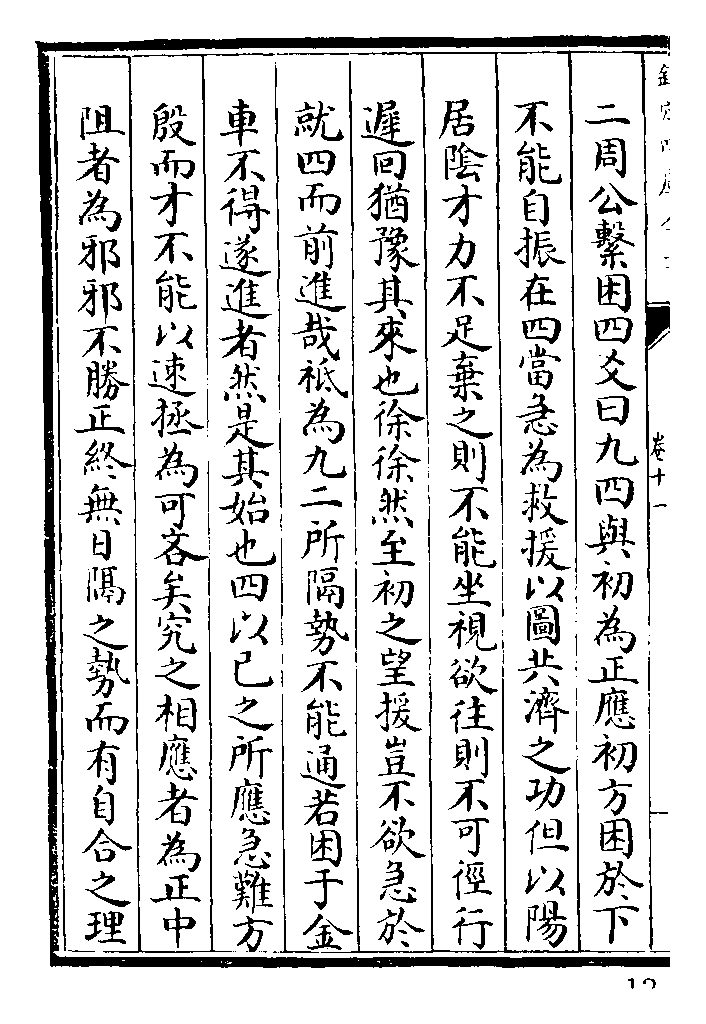 卷十一
二周公繫困四爻曰九四與初為正應初方困於下
不能自振在四當急為救援以圖共濟之功但以陽
居陰才力不足棄之則不能坐視欲往則不可徑行
遲回猶豫其來也徐徐然至初之望援豈不欲急於
就四而前進哉祇為九二所隔勢不能通若困于金
車不得遂進者然是其始也四以已之所應急難方
殷而才不能以速拯為可吝矣究之相應者為正中
阻者為邪邪不勝正終無日隔之勢而有自合之理